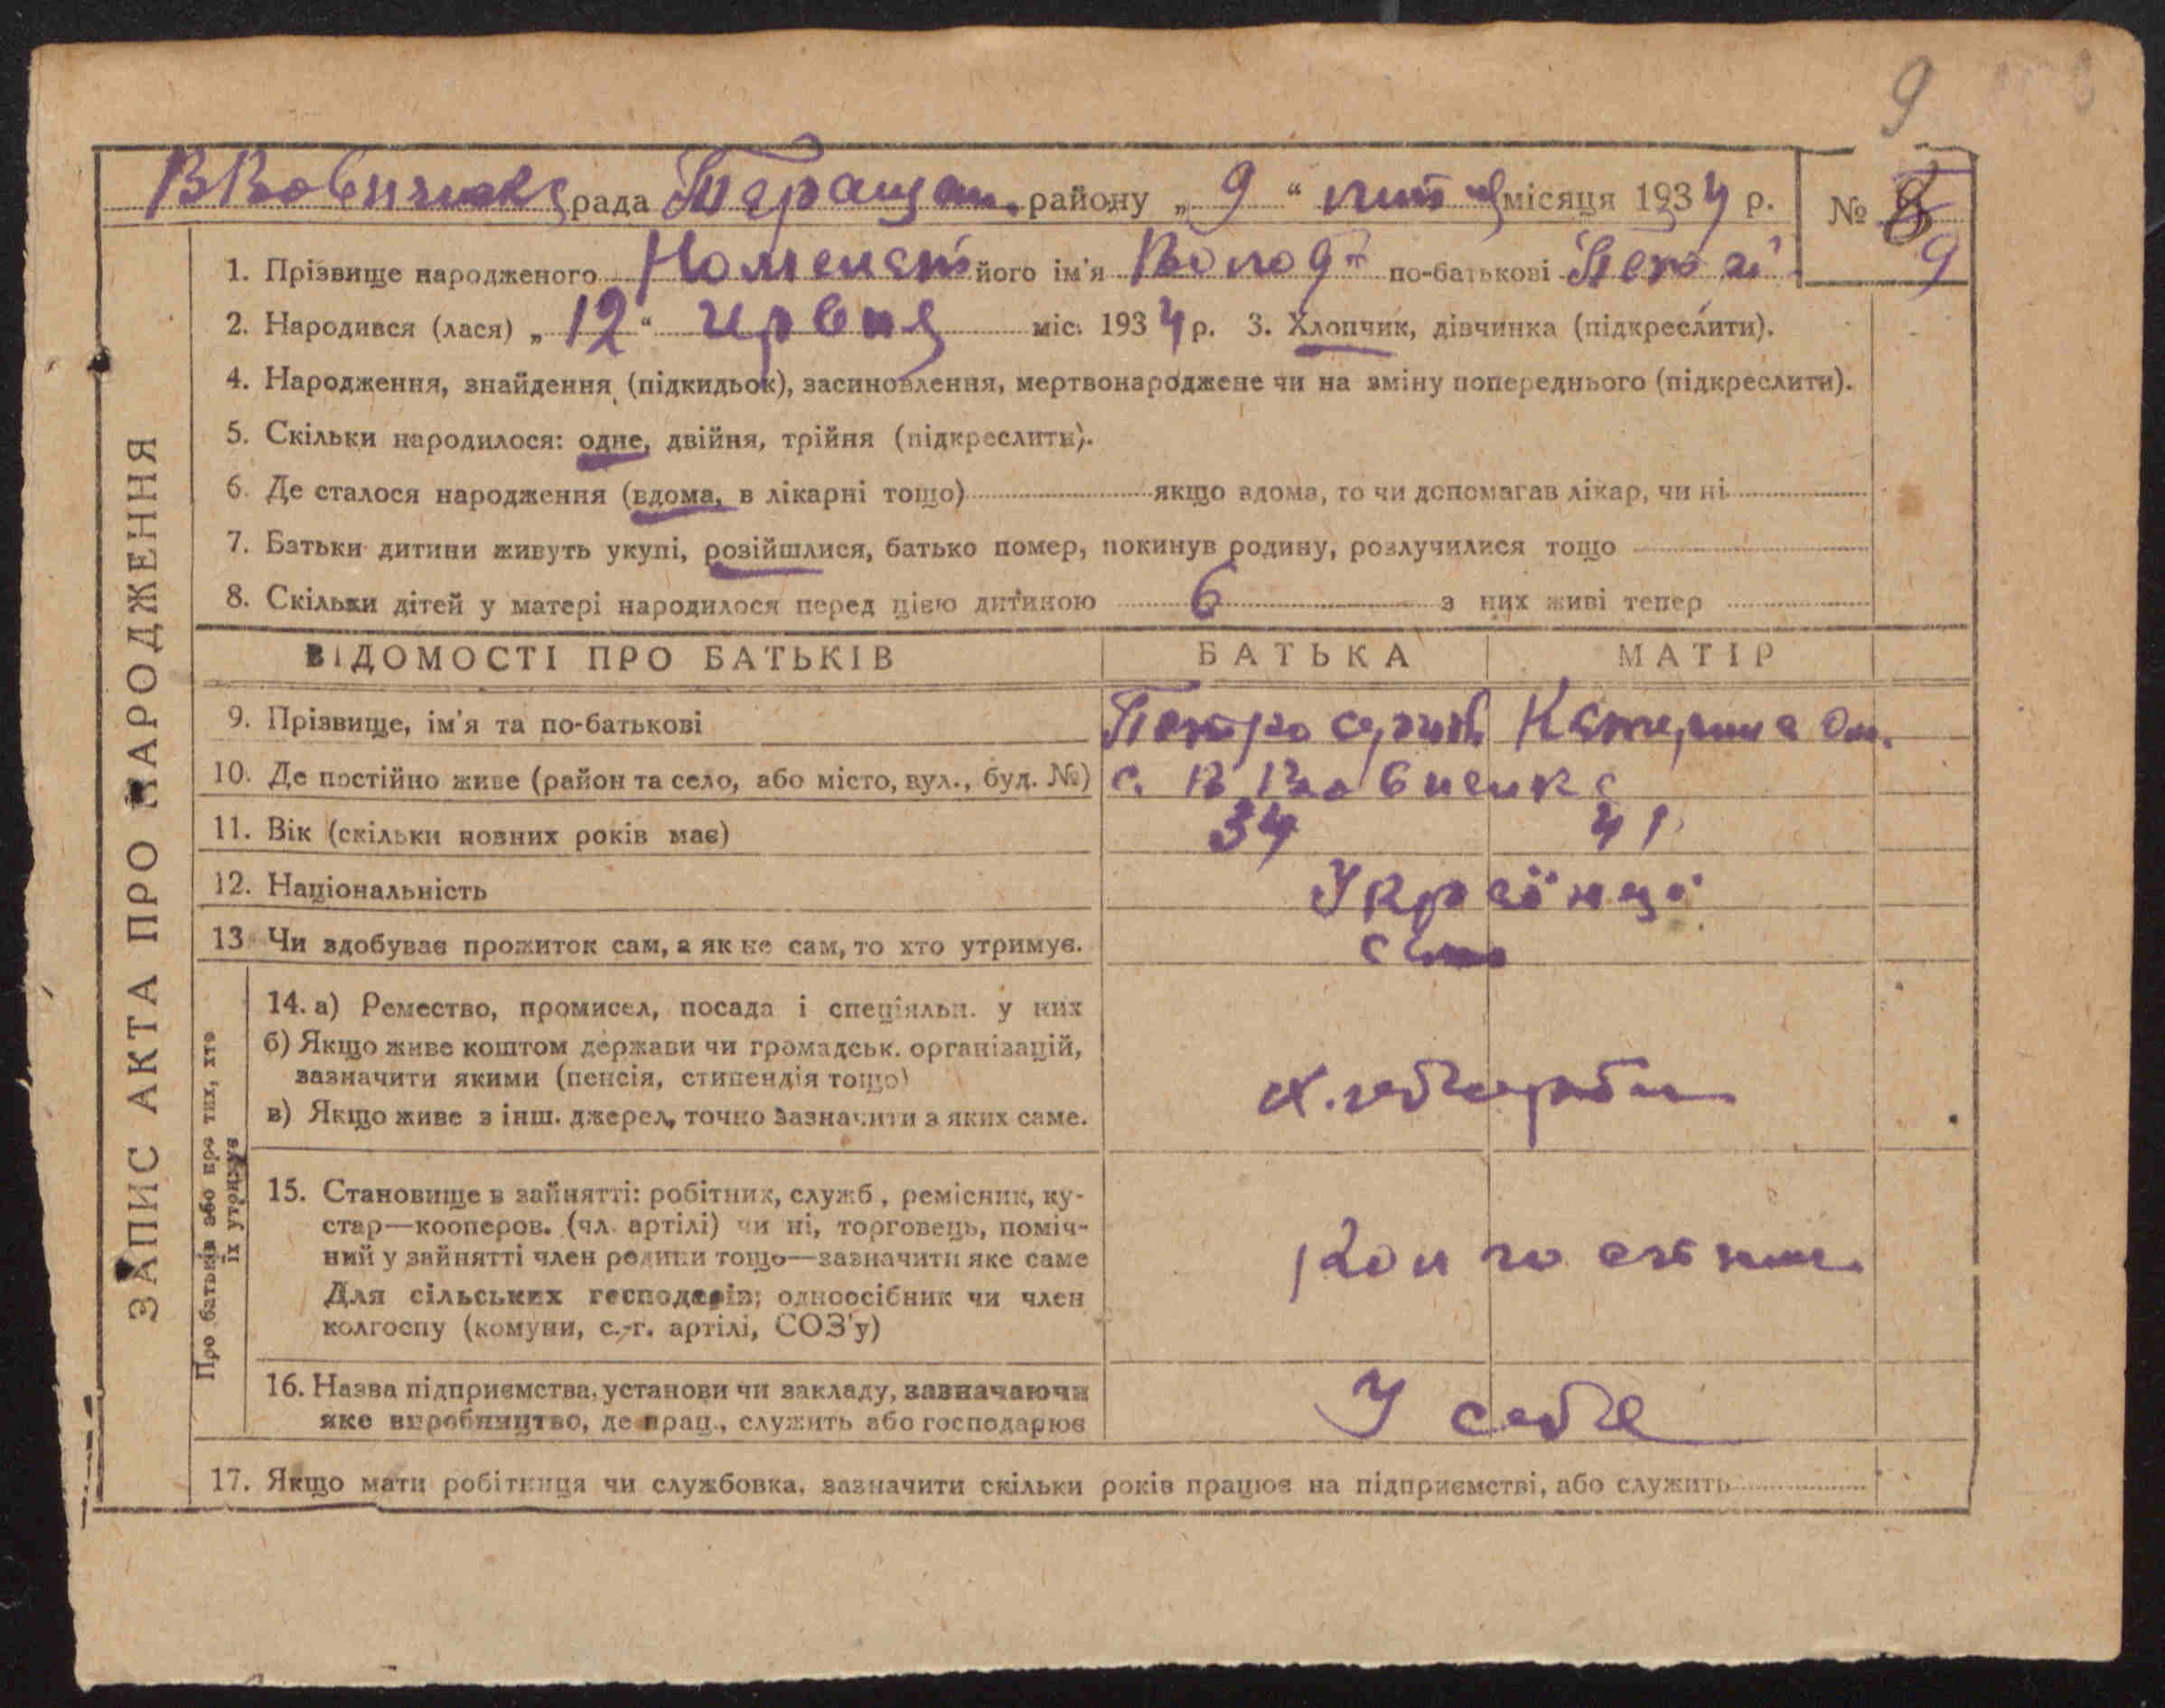 9
рада Таращан. району „ 9 “ місяця 1934 р. № 8
9
1. Прізвище народженого його ім'я Волод по-батькові
2. Народився (лася) „ 12 “ червня міс. 1934 р. 3. Хлопчик, дівчинка (підкреслити).
4. Народження, знайдення (підкидьок), засиновлення, мертвонароджене чи на зміну попереднього (підкреслити).
5. Скільки народилося: одне, двійня, трійня (підкреслити).
6. Де сталося народження (вдома, в лікарні тощо) якщо вдома, то чи допомагав лікар, чи ні
7. Батьки дитини живуть укупі, розійшлися, батько помер, покинув родину, розлучилися тощо
8. Скільки дітей у матері народилося перед цією дитиною 6 з них живі тепер
ЗАПИС АКТА ПРО НАРОДЖЕННЯ
ВІДОМОСТІ ПРО БАТЬКІВ БАТЬКА МАТІР
9. Прізвище, ім'я та по-батькові Петро Катерина
10. Де постійно живе (район та село, або місто, вул., буд. №) с.
11. Вік (скільки повних років має) 34 41
12. Національність Українці
13. Чи здобуває прожиток сам, а як не сам, то хто утримує. сам
Про батьків або про тих, хто їх утримує
14. а) Ремество, промисел, посада і спеціяльн. у них
б) Якщо живе коштом держави чи громадськ. організацій,
зазначити якими (пенсія, стипендія тощо)
в) Якщо живе з інш. джерел, точно зазначити з яких саме.
15. Становище в зайнятті: робітник, служб., ремісник, ку-
стар—кооперов. (чл. артілі) чи ні, торговець, поміч-
ний у зайнятті член родини тощо—зазначити яке саме
Для сільських господарів; одноосібник чи член
колгоспу (комуни, с.-г. артілі, СОЗ'у)
16. Назва підприємства, установи чи закладу, зазначаючи
яке виробництво, де прац., служить або господарює У себе
17. Якщо мати робітниця чи службовка, зазначити скільки років працює на підприємстві, або служить